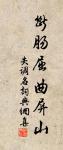 断肠屈曲屏山
失调名词典网集